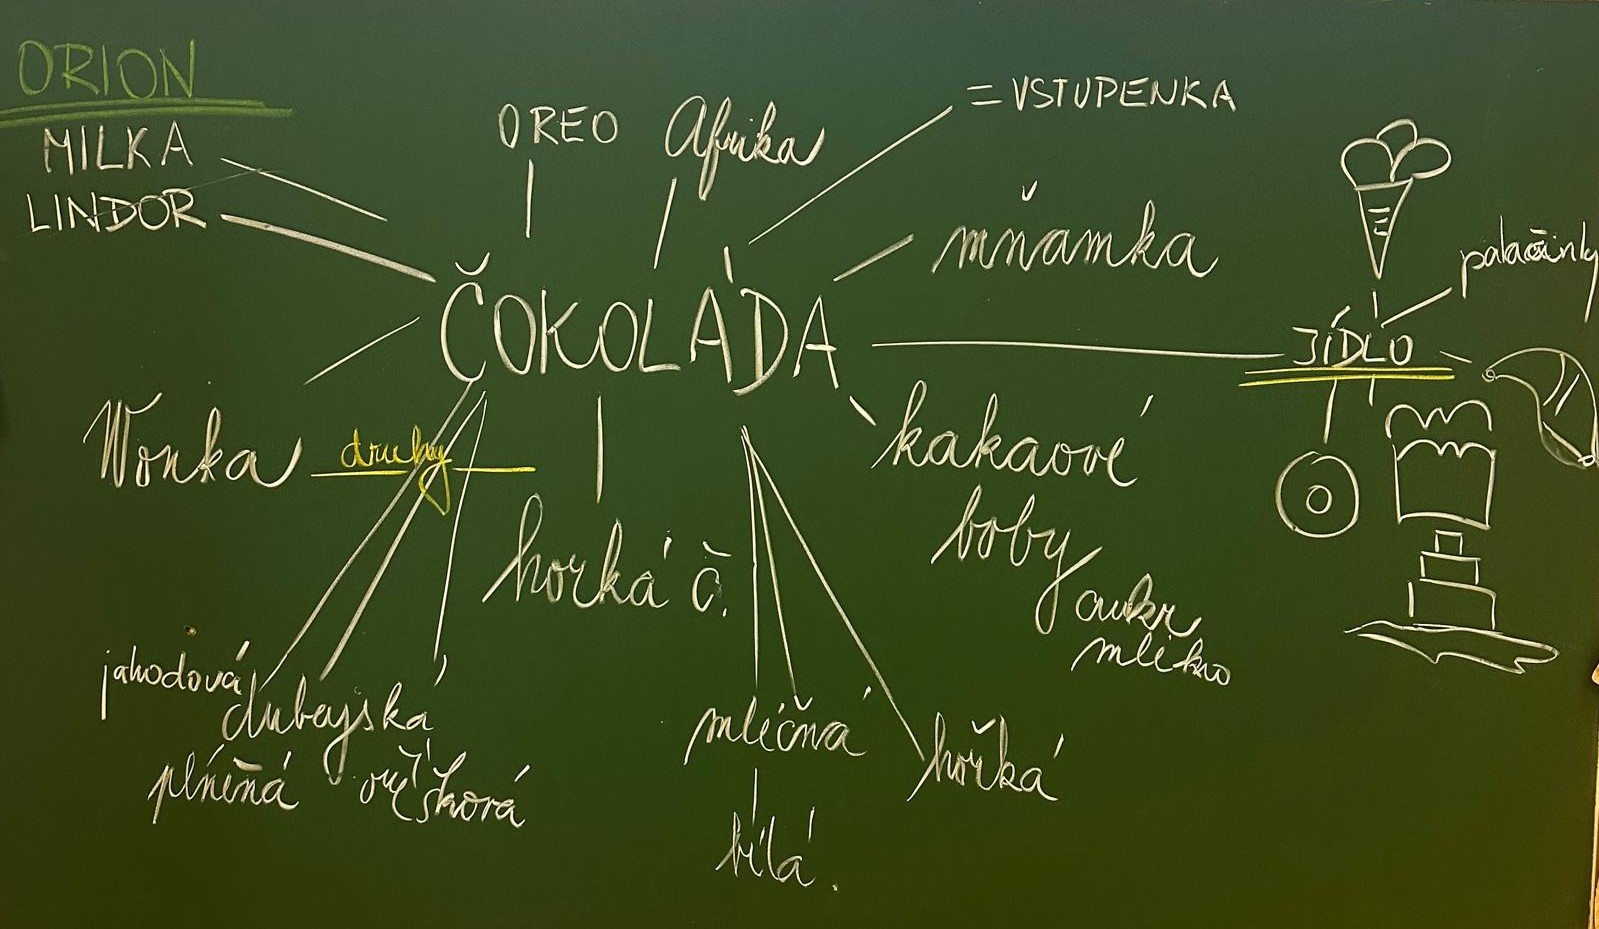 ORION
MILKA
LINDOR
OREO
Afrika
= VSTUPENKA
mňamka
ČOKOLÁDA
palačinky
JÍDLO
Wonka
druhy
kakaové
boby
cukr
mléko
horká č.
jahodová
dubajská
plněná
oříšková
mléčná
hořká
bílá.